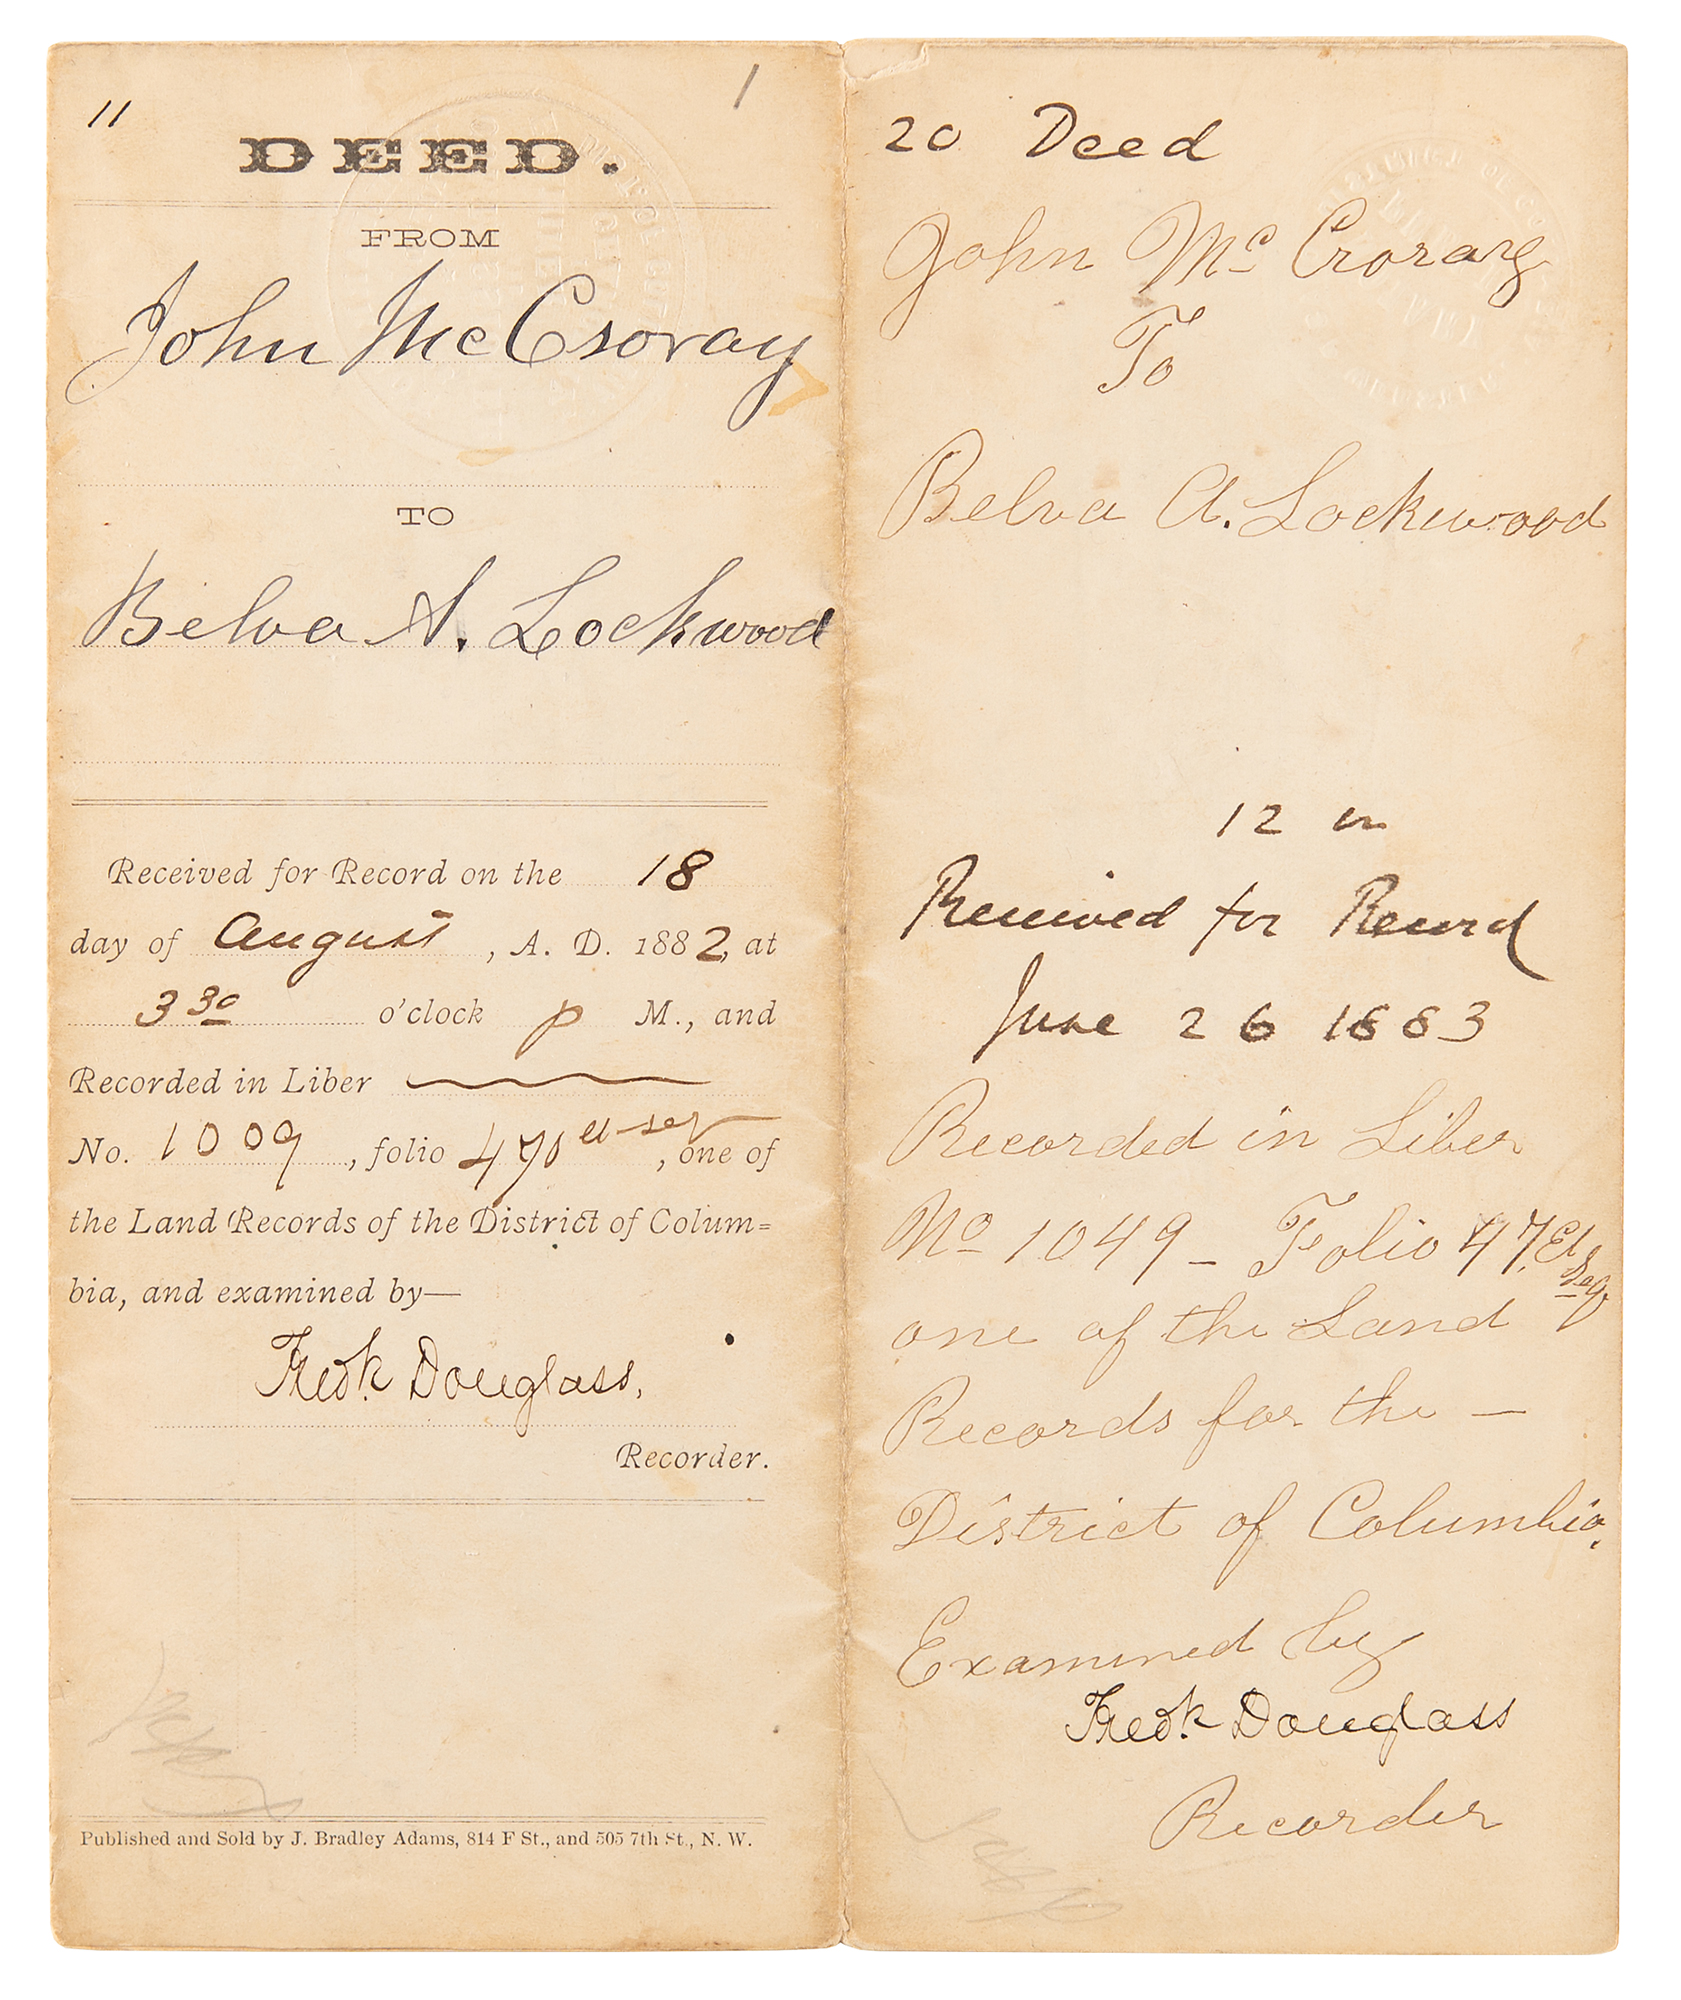 11
1
DEED.
FROM
John McCroray
TO
Belva A. Lockwood
Received for Record on the 18
day of August, A. D. 1882, at
3 30 o'clock p M., and
Recorded in Liber
No. 1009, folio 470 et seq, one of
the Land Records of the District of Colum=
bia, and examined by—
Fredk Douglass,
Recorder.
Published and Sold by J. Bradley Adams, 814 F St., and 505 7th St., N. W.
20 Deed
John Mc Croray
To
Belva A. Lockwood
12 m
Received for Record
June 26 1883
Recorded in Liber
No 1049 – Folio 47, Et Seq
one of the Land
Records for the –
District of Columbia.
Examined by
Fredk Douglass
Recorder